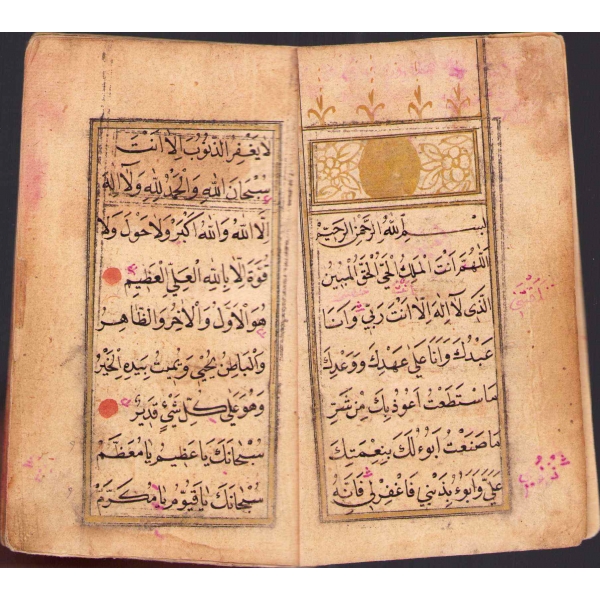 بسم الله الرحمن الرحيم
اللهم انت الملك الحي الحق المبين
الذى لا اله الا انت ربى وانا
عبدك وانا على عهدك ووعدك
ما ستطعت اعوذ بك من شر
ما صنعت ابوء لك بنعمتك
على وابوء بذنبى فاغفرلى فانه
لا يغفر الذنوب الا انت
سبحان الله والحمد لله ولا اله
الا الله والله اكبر ولا حول ولا
قوة الا بالله العلى العظيم
هو الاول والاخر والظاهر
والباطن يحيى ويميت بيده الخير
وهو على كل شئ قدير
سبحانك يا عظيم يا معظم
سبحانك يا قيوم يا مكرم